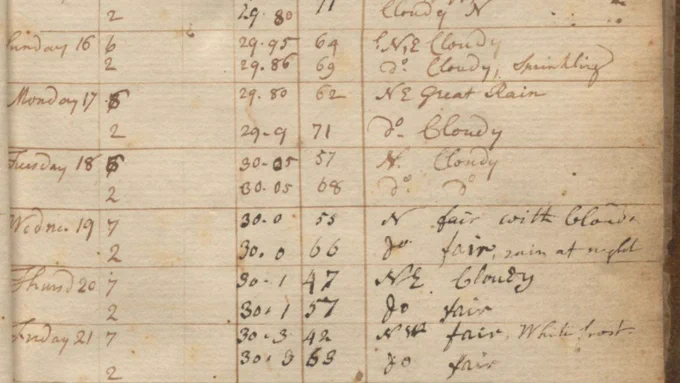 2 29.80 71 Cloudy N
Sunday 16 6 29.95 64 N,E Cloudy
2 29.86 69 Do. Cloudy, Sprinkling
Monday 17 6 29.80 62 NE Great Rain
2 29-9 71 Do. Cloudy
Tuesday 18 6 30-05 57 N. Cloudy
2 30.05 68 Do Do
Wedne. 19 7 30.0 55 N fair with Clouds
2 30.0 66 Do fair, rain at night
Thursd 20 7 30-1 47 NE Cloudy
2 30.1 57 Do fair
Friday 21 7 30-3 42 NW fair, White frost
2 30.3 63 Do fair